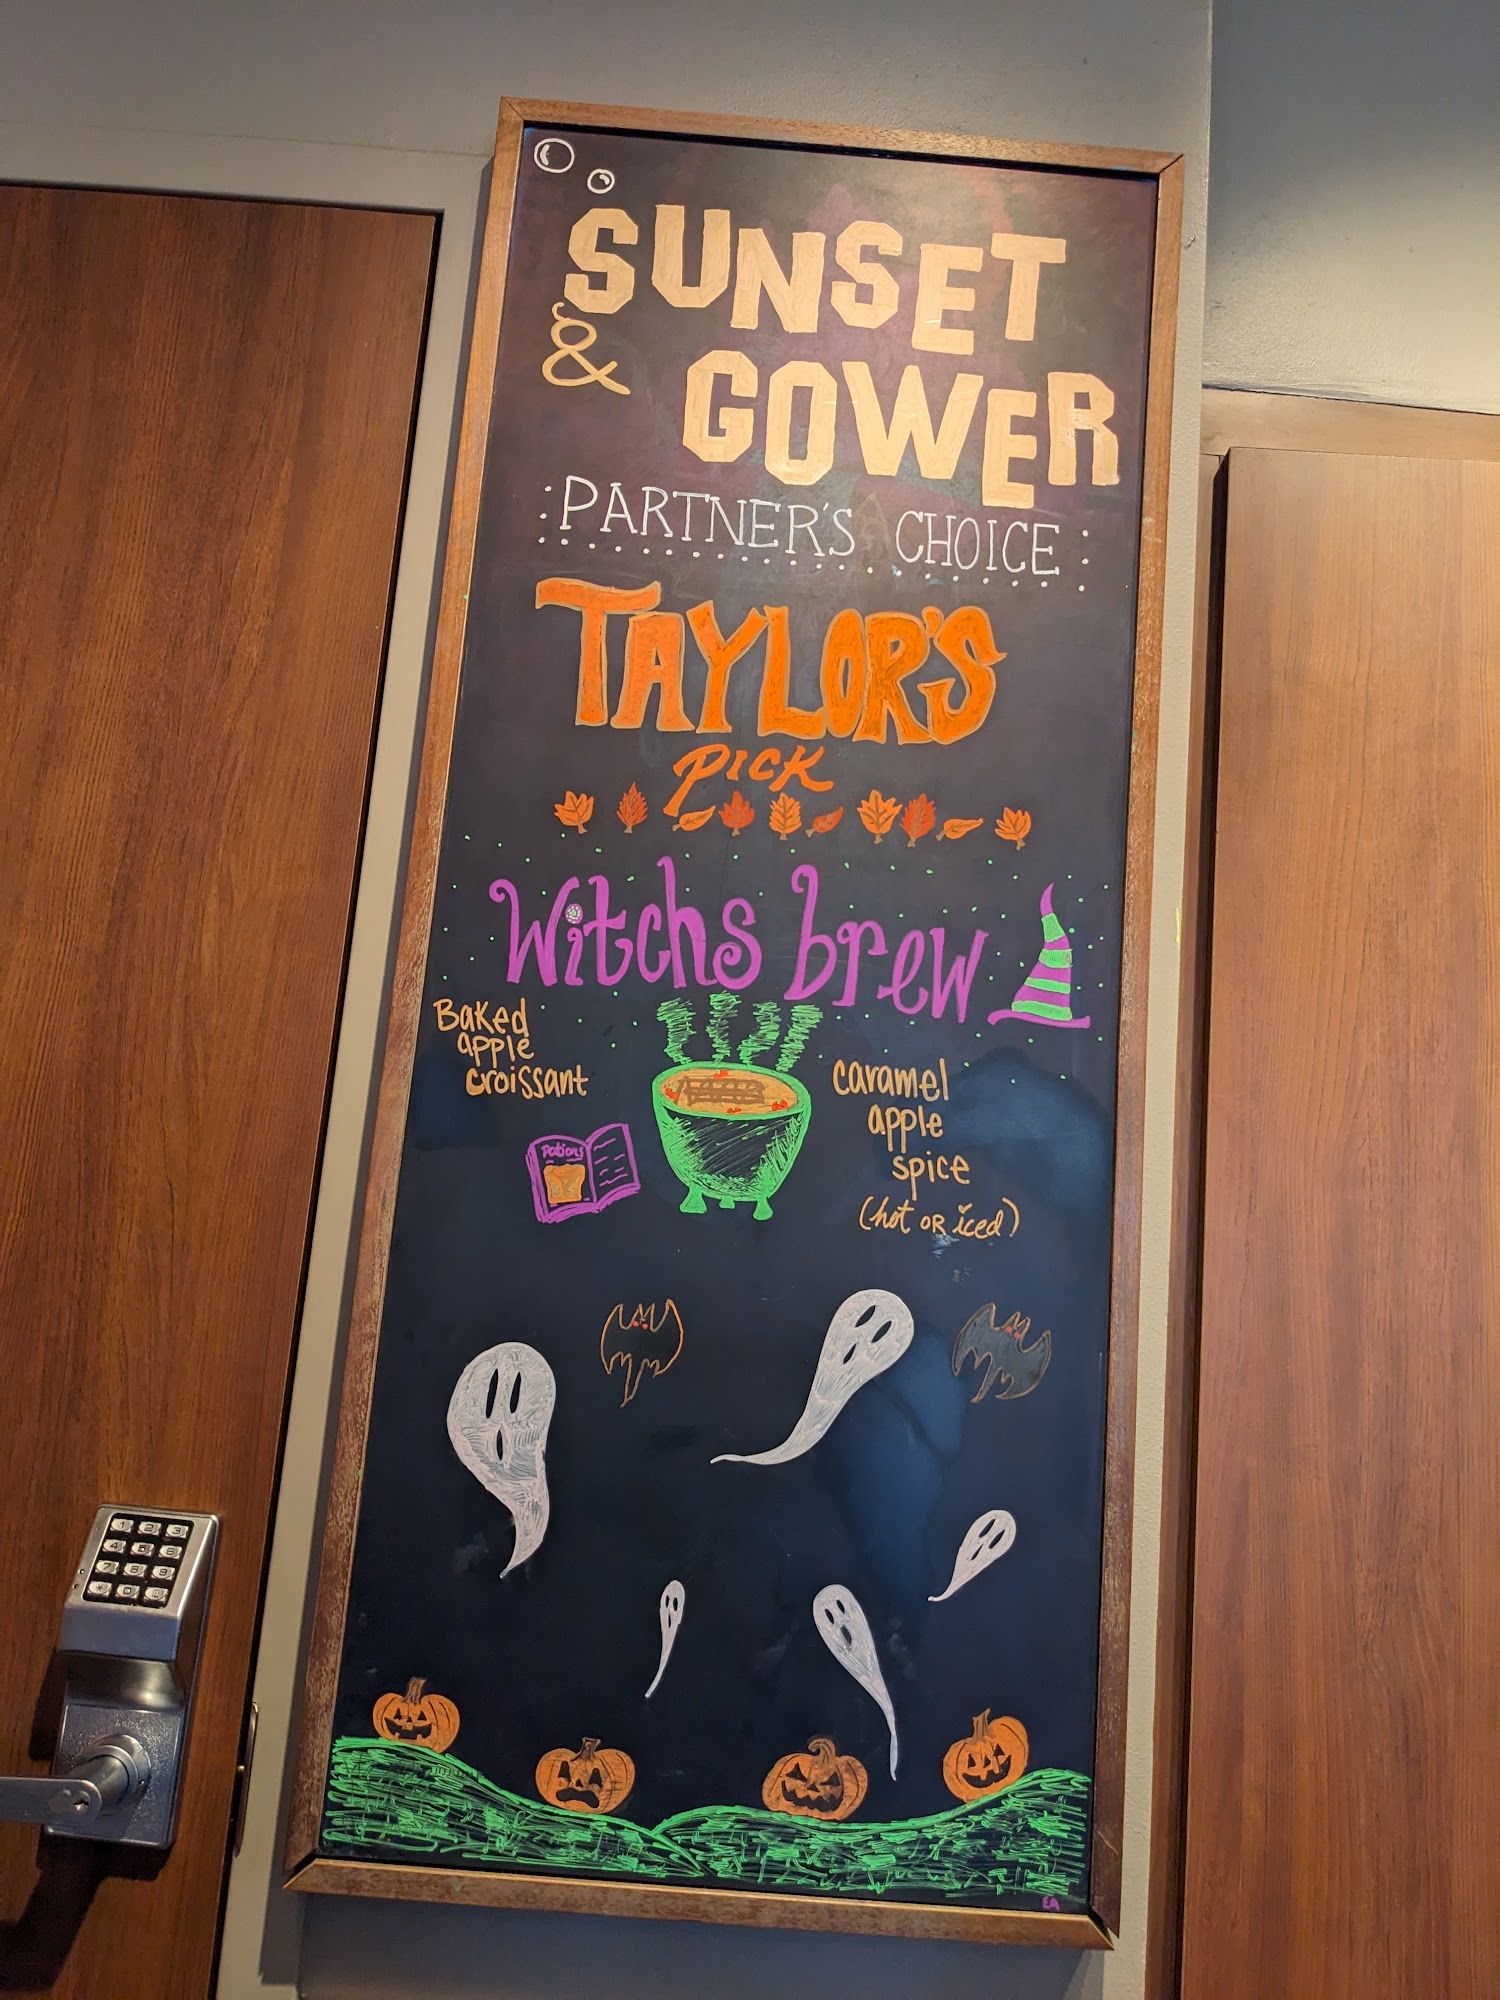 SUNSET
& GOWER
PARTNER'S CHOICE
TAYLOR'S
PICK
Witchs brew
Baked
apple
croissant
Potions
caramel
apple
spice
(hot OR iced)
EA
1 2 3
4 5 6
7 8 9